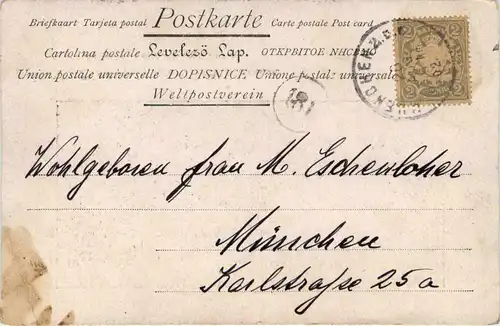 Briefkaart Tarjeta postal Postkarte Carte postale Post card
Cartolina postale Levelező Lap. ОТКРЫТОЕ
Union postale universelle DOPISNICE Unione postale universale
Weltpostverein
2 2
2 2
Wohlgeboren Frau M. Eschenloher
München
Karlstraße 25 a